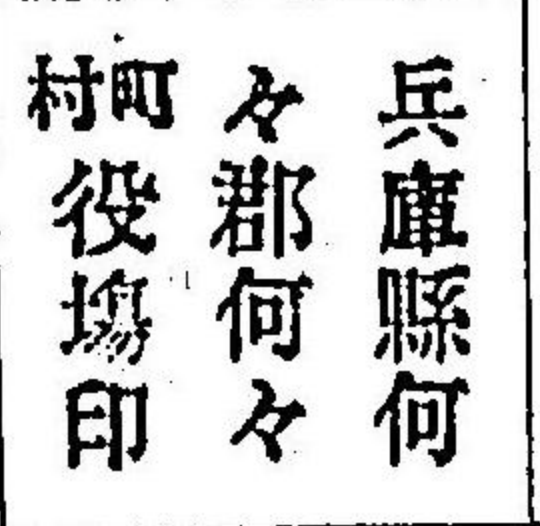 兵庫縣何
々郡何々
町村役塲印